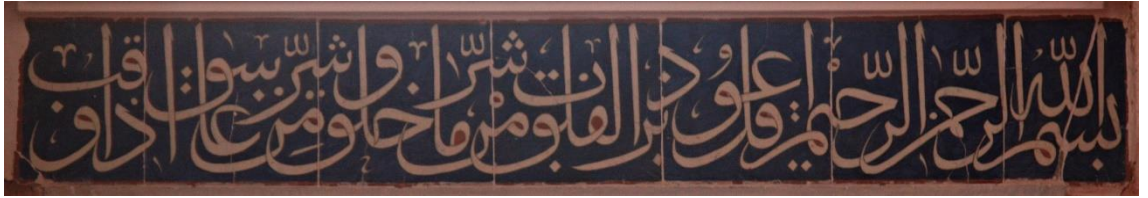 بسم الله الرحمن الرحيم قل اعوذ برب الفلق من شر ما خلق ومن شر غاسق اذا وقب